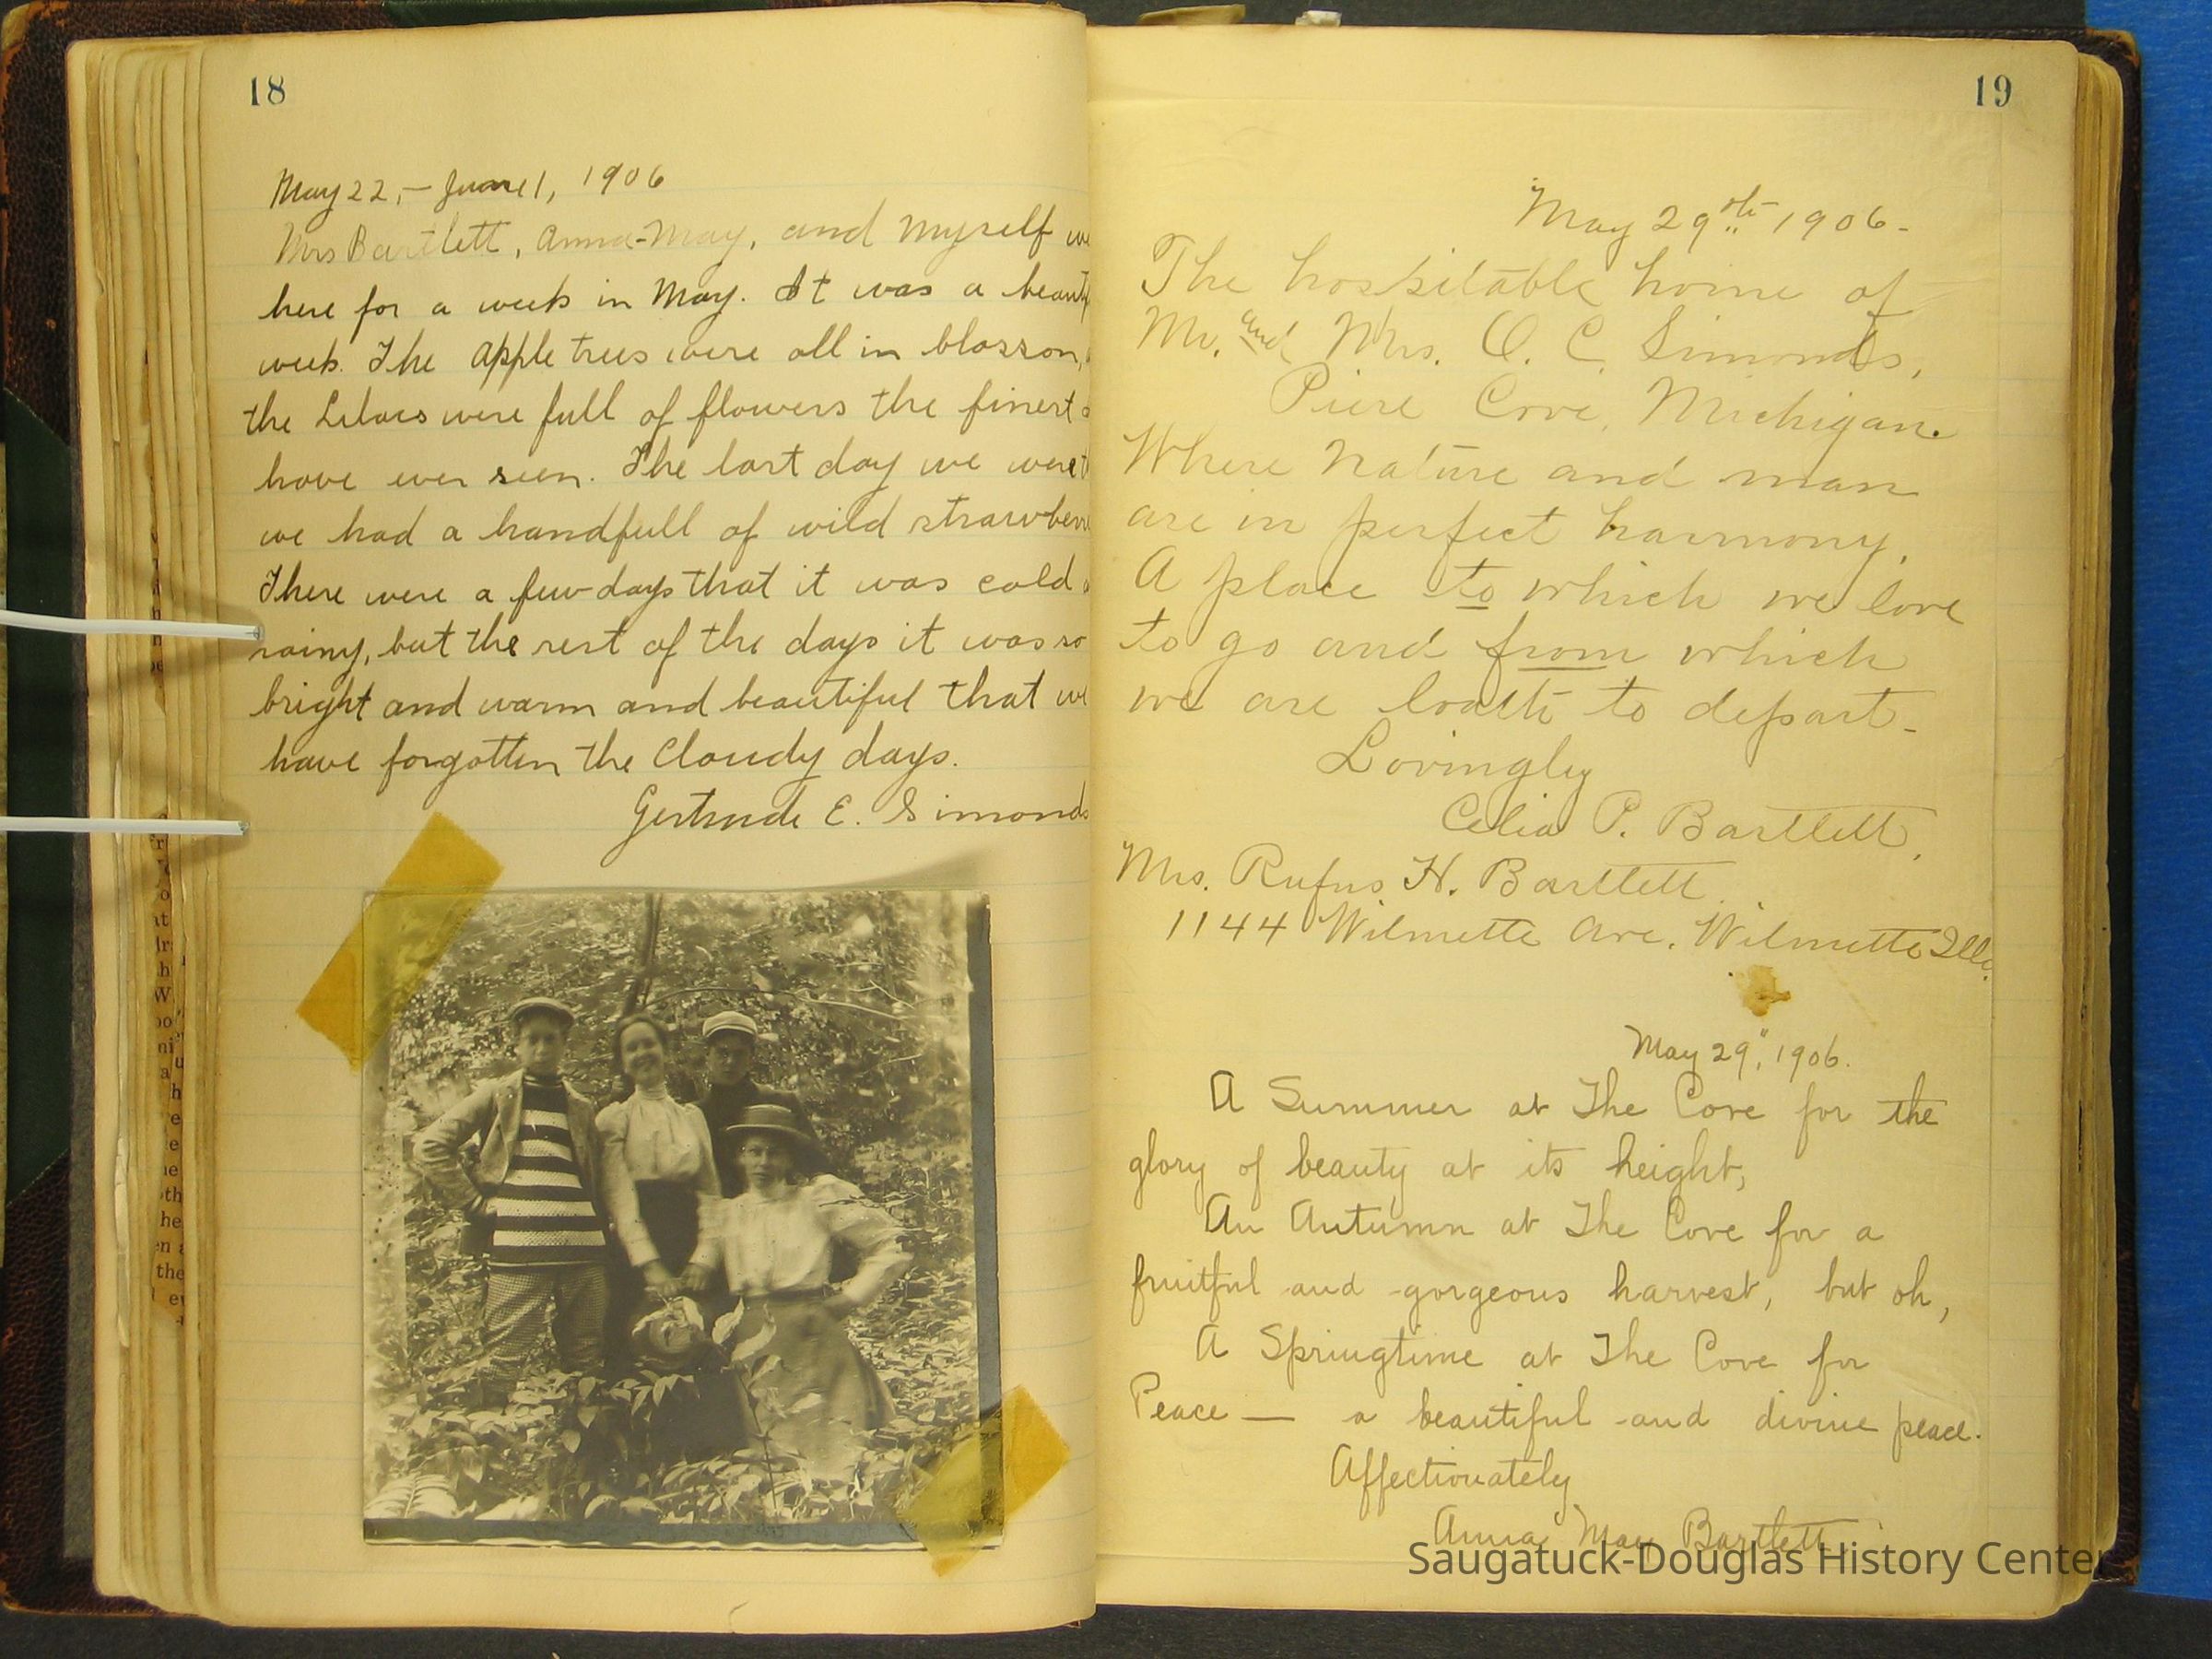 18
May 22, - June 1, 1906
Mrs Bartlett, Anna-May, and myself
here for a week in May. It was a
week. The apple trees were all in blossom,
the Lilacs were full of flowers the finest
have ever seen. The last day we
we had a handfull of wild
There were a few days that it was cold
rainy, but the rest of the days it was so
bright and warm and beautiful that
have forgotten the cloudy days.
Gertrude E. Simonds
19
May 29th 1906 -
The hospitable home of
Mr. and Mrs. O. C. Simonds,
Piere Cove, Michigan.
Where nature and man
are in perfect harmony.
A place to which we love
to go and from which
we are loath to depart -
Lovingly
Celia P. Bartlett,
Mrs. Rufus H. Bartlett.
1144 Wilmette Ave. Wilmette Ills.
May 29", 1906.
A Summer at The Cove for the
glory of beauty at its height,
An Autumn at The Cove for a
fruitful and gorgeous harvest, but oh,
A Springtime at The Cove for
Peace — a beautiful and divine peace.
Affectionately
Anna May Bartlett.
Saugatuck-Douglas History Center